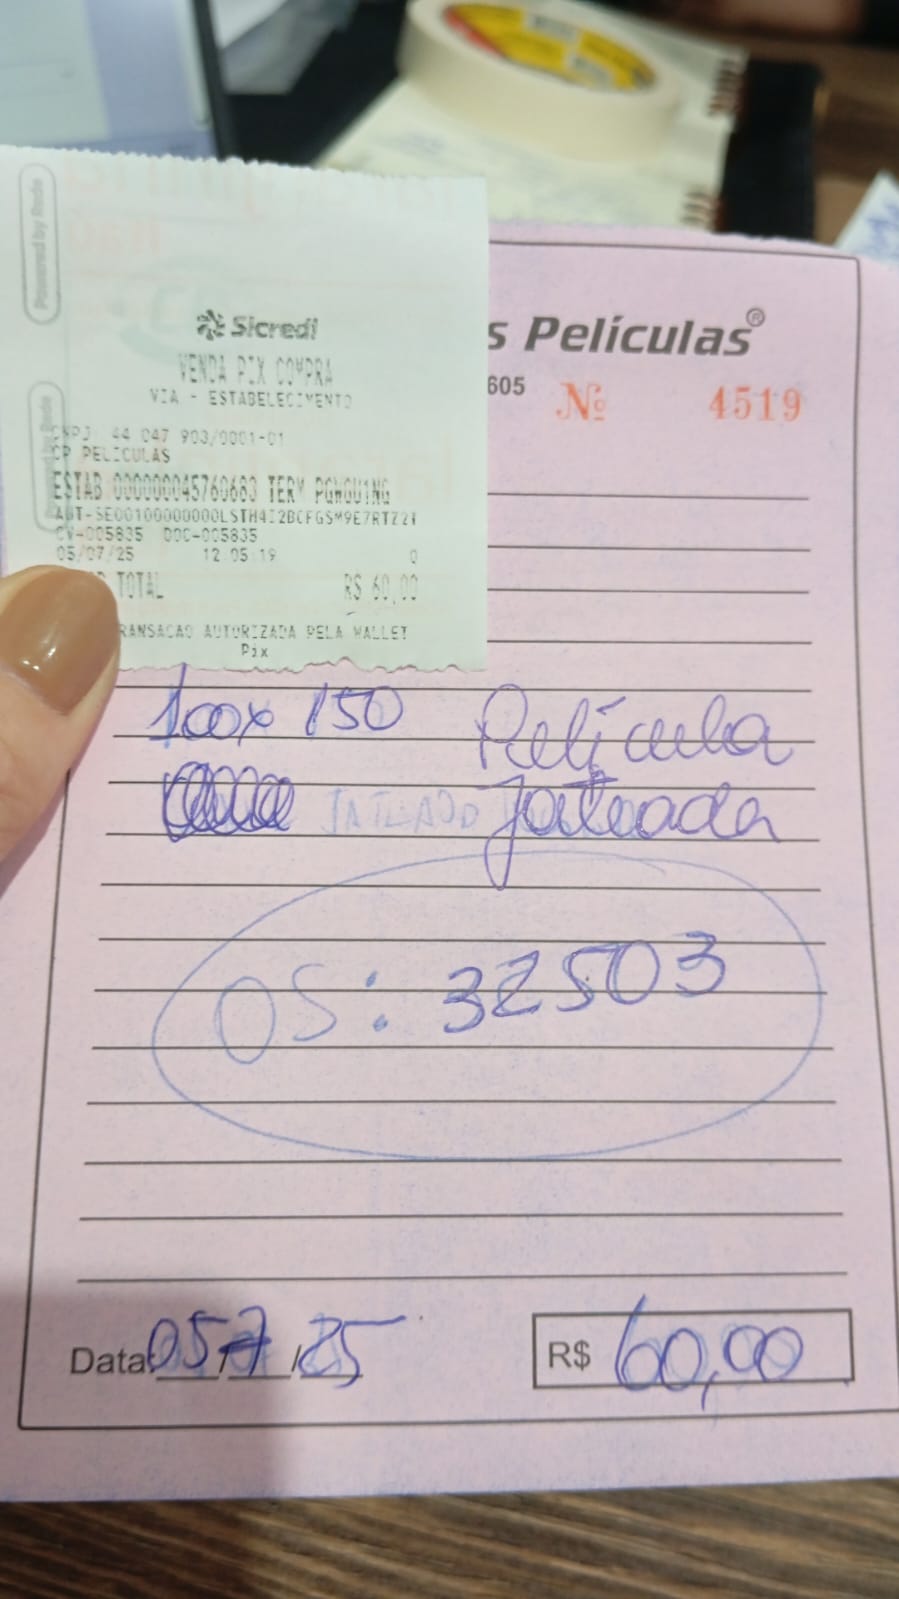 Powered by Rede
Sicredi
VENDA PIX COMPRA
VIA - ESTABELECIMENTO
CNPJ 44 047 903/0001-01
CP PELICULAS
ESTAB 000000045760683 TERM PGWGU1NG
CV-005835 DOC-005835
05/07/25 12 05 19 0
TOTAL R$ 60,00
RANSACAO AUTORIZADA PELA WALLET
Pix
s Películas®
605 Nº 4519
100x 150 Película
JATEADO Jateada
OS: 32503
Data: 05/7/25 R$ 60,00